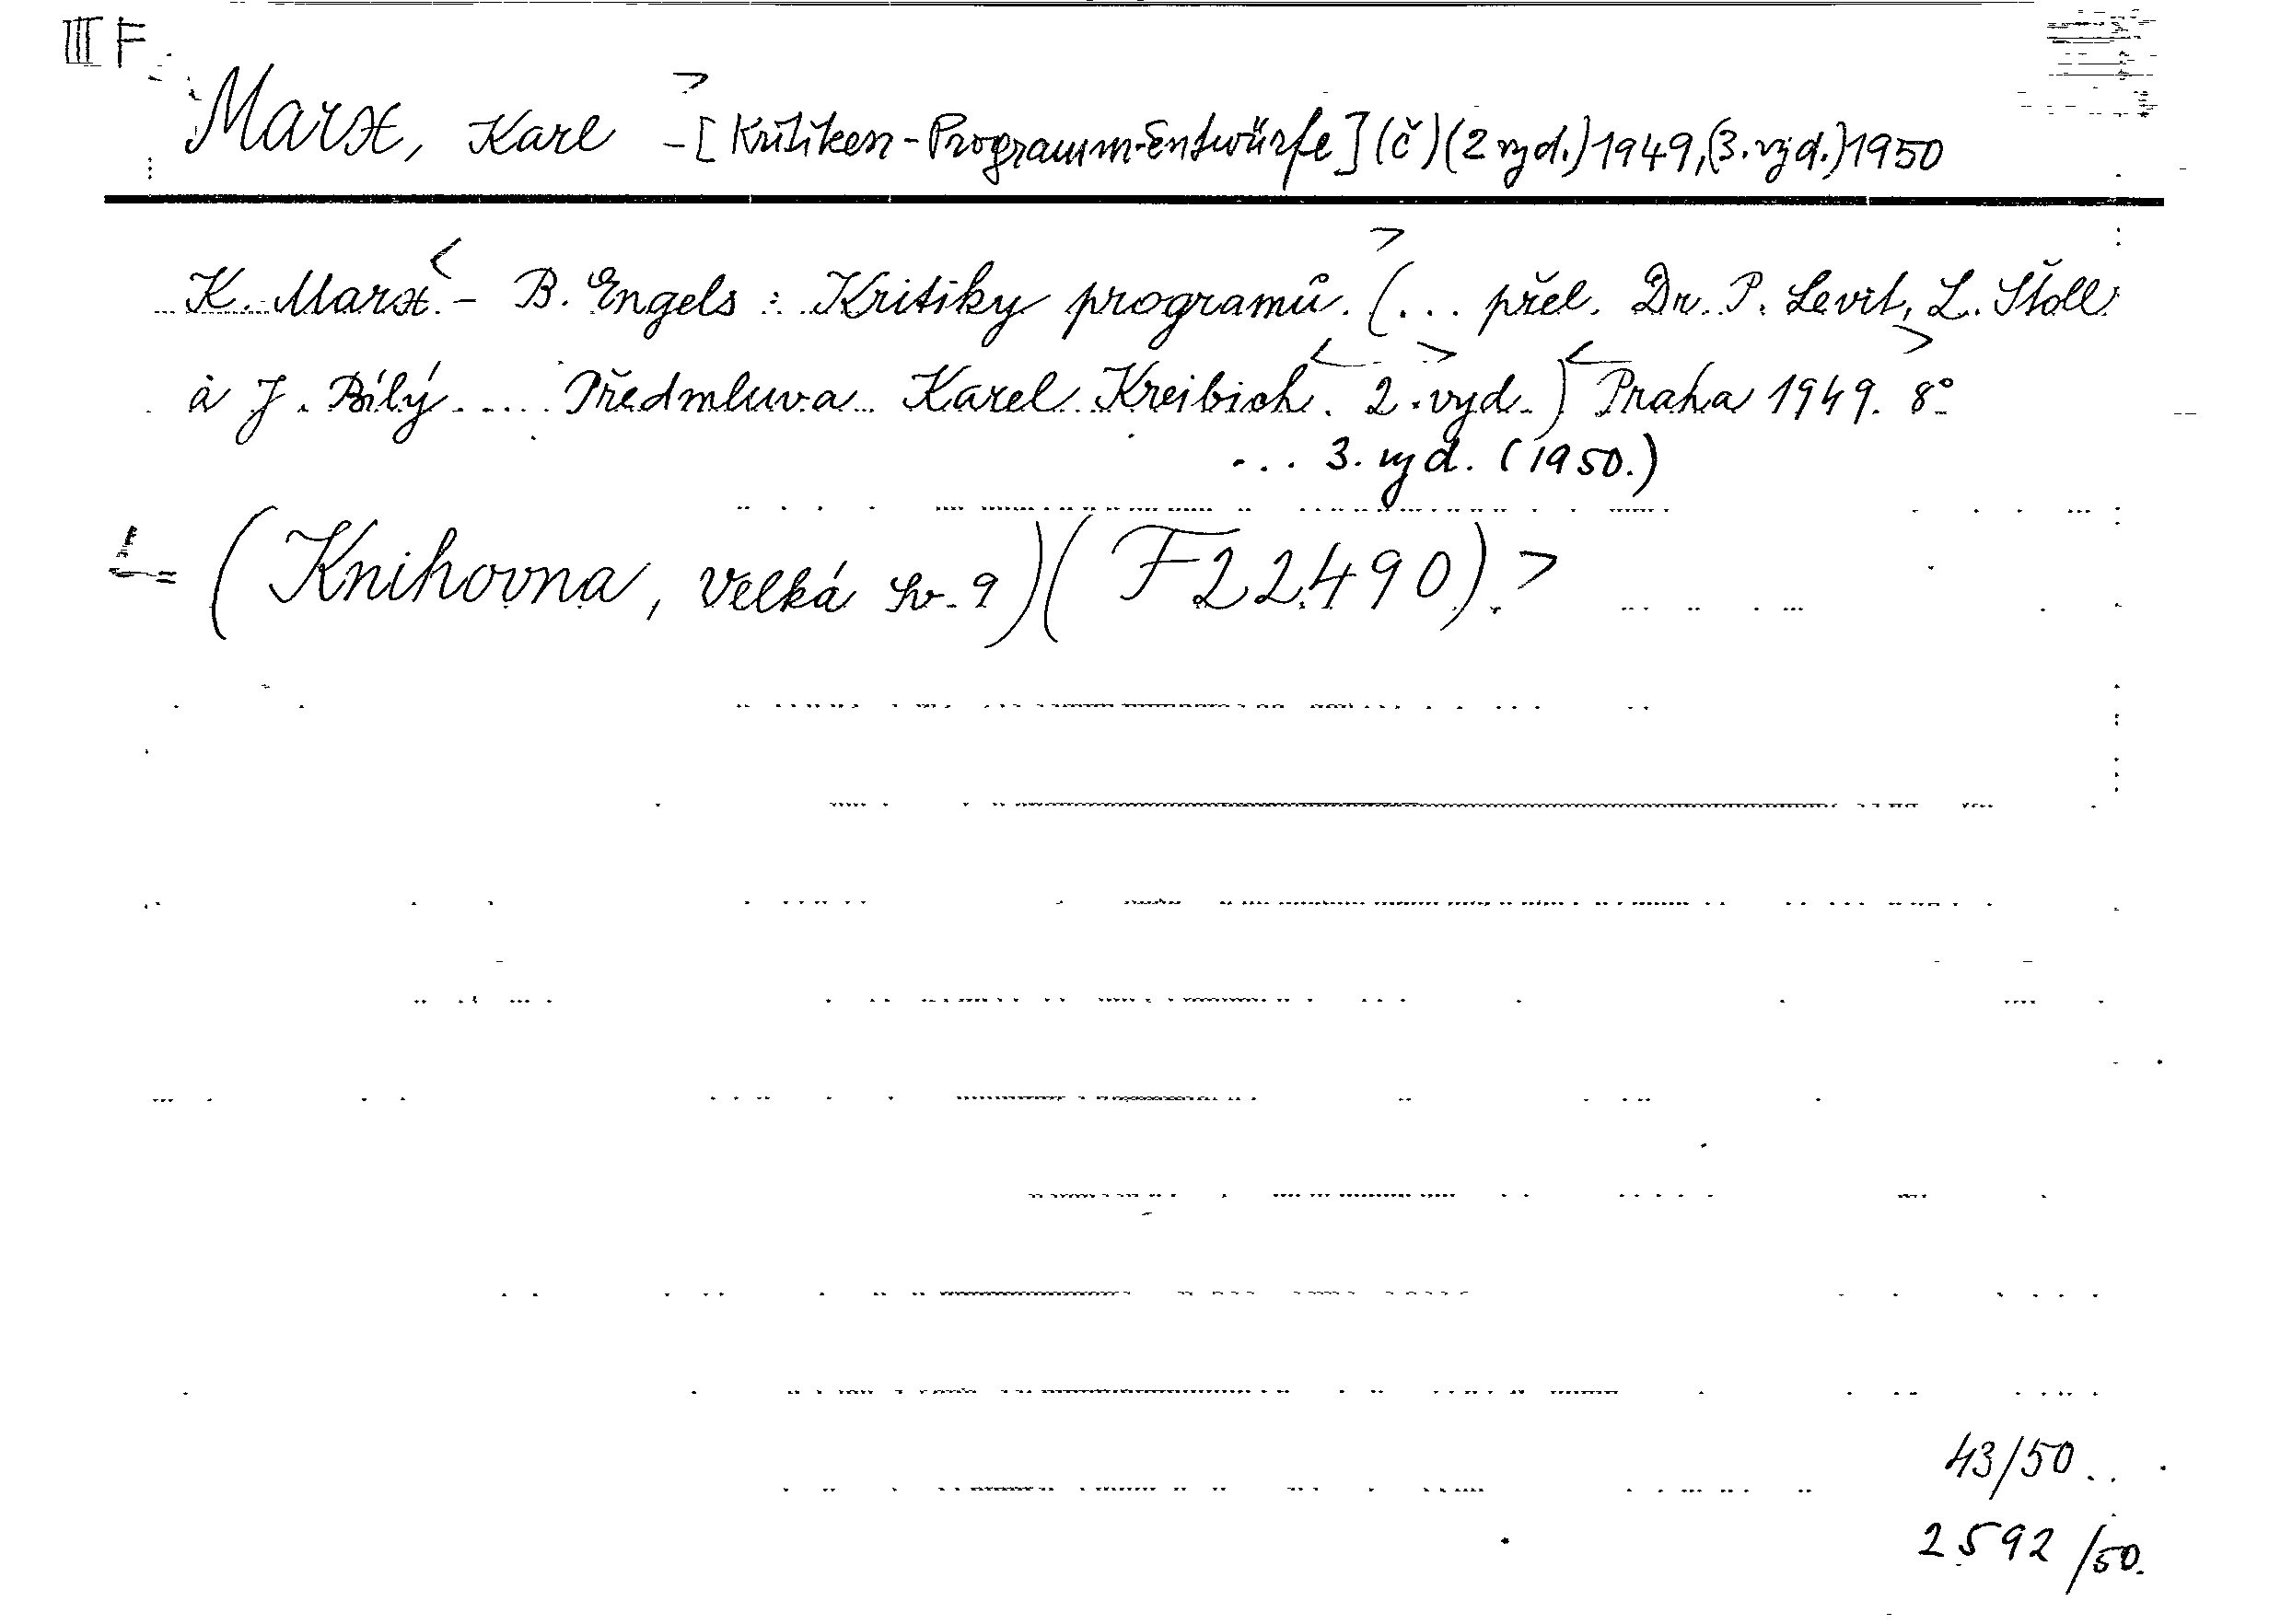 III F
Marx, Karl -[Kritiken-Programm-Entwürfe](č)(2 vyd.)1949,(3.vyd.)1950
K. Marx - B. Engels : Kritiky programů. (... přel. Dr. P. Levit, L. Štoll
a J. Bílý .... Předmluva Karel Kreibich. 2.vyd.) Praha 1949. 8°
... 3. vyd. (1950.)
(Knihovna, Velká Sv. 9)(F 22.490).
43/50
2592/50.